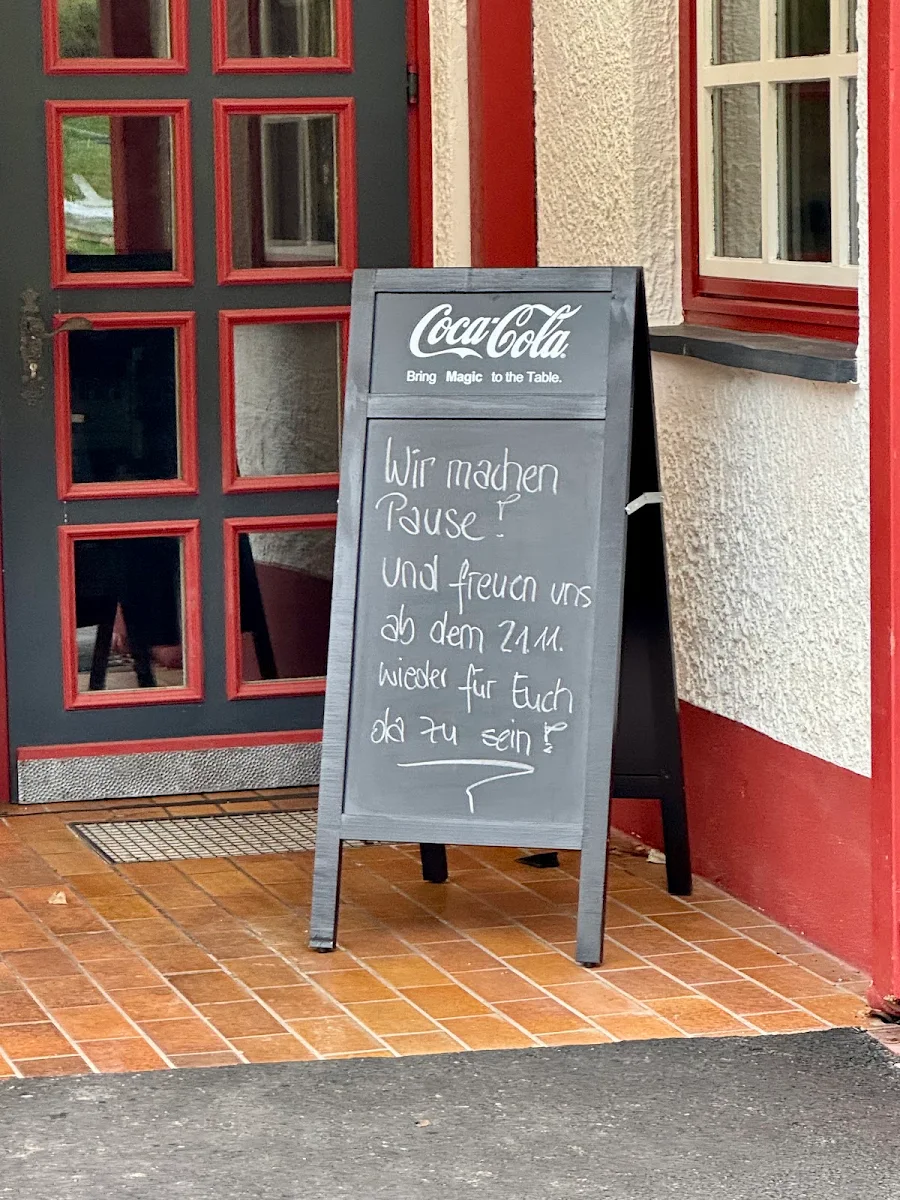 Coca-Cola
Bring Magic to the Table.
Wir machen
Pause!
und freuen uns
ab dem 21.11.
wieder für Euch
da zu sein!